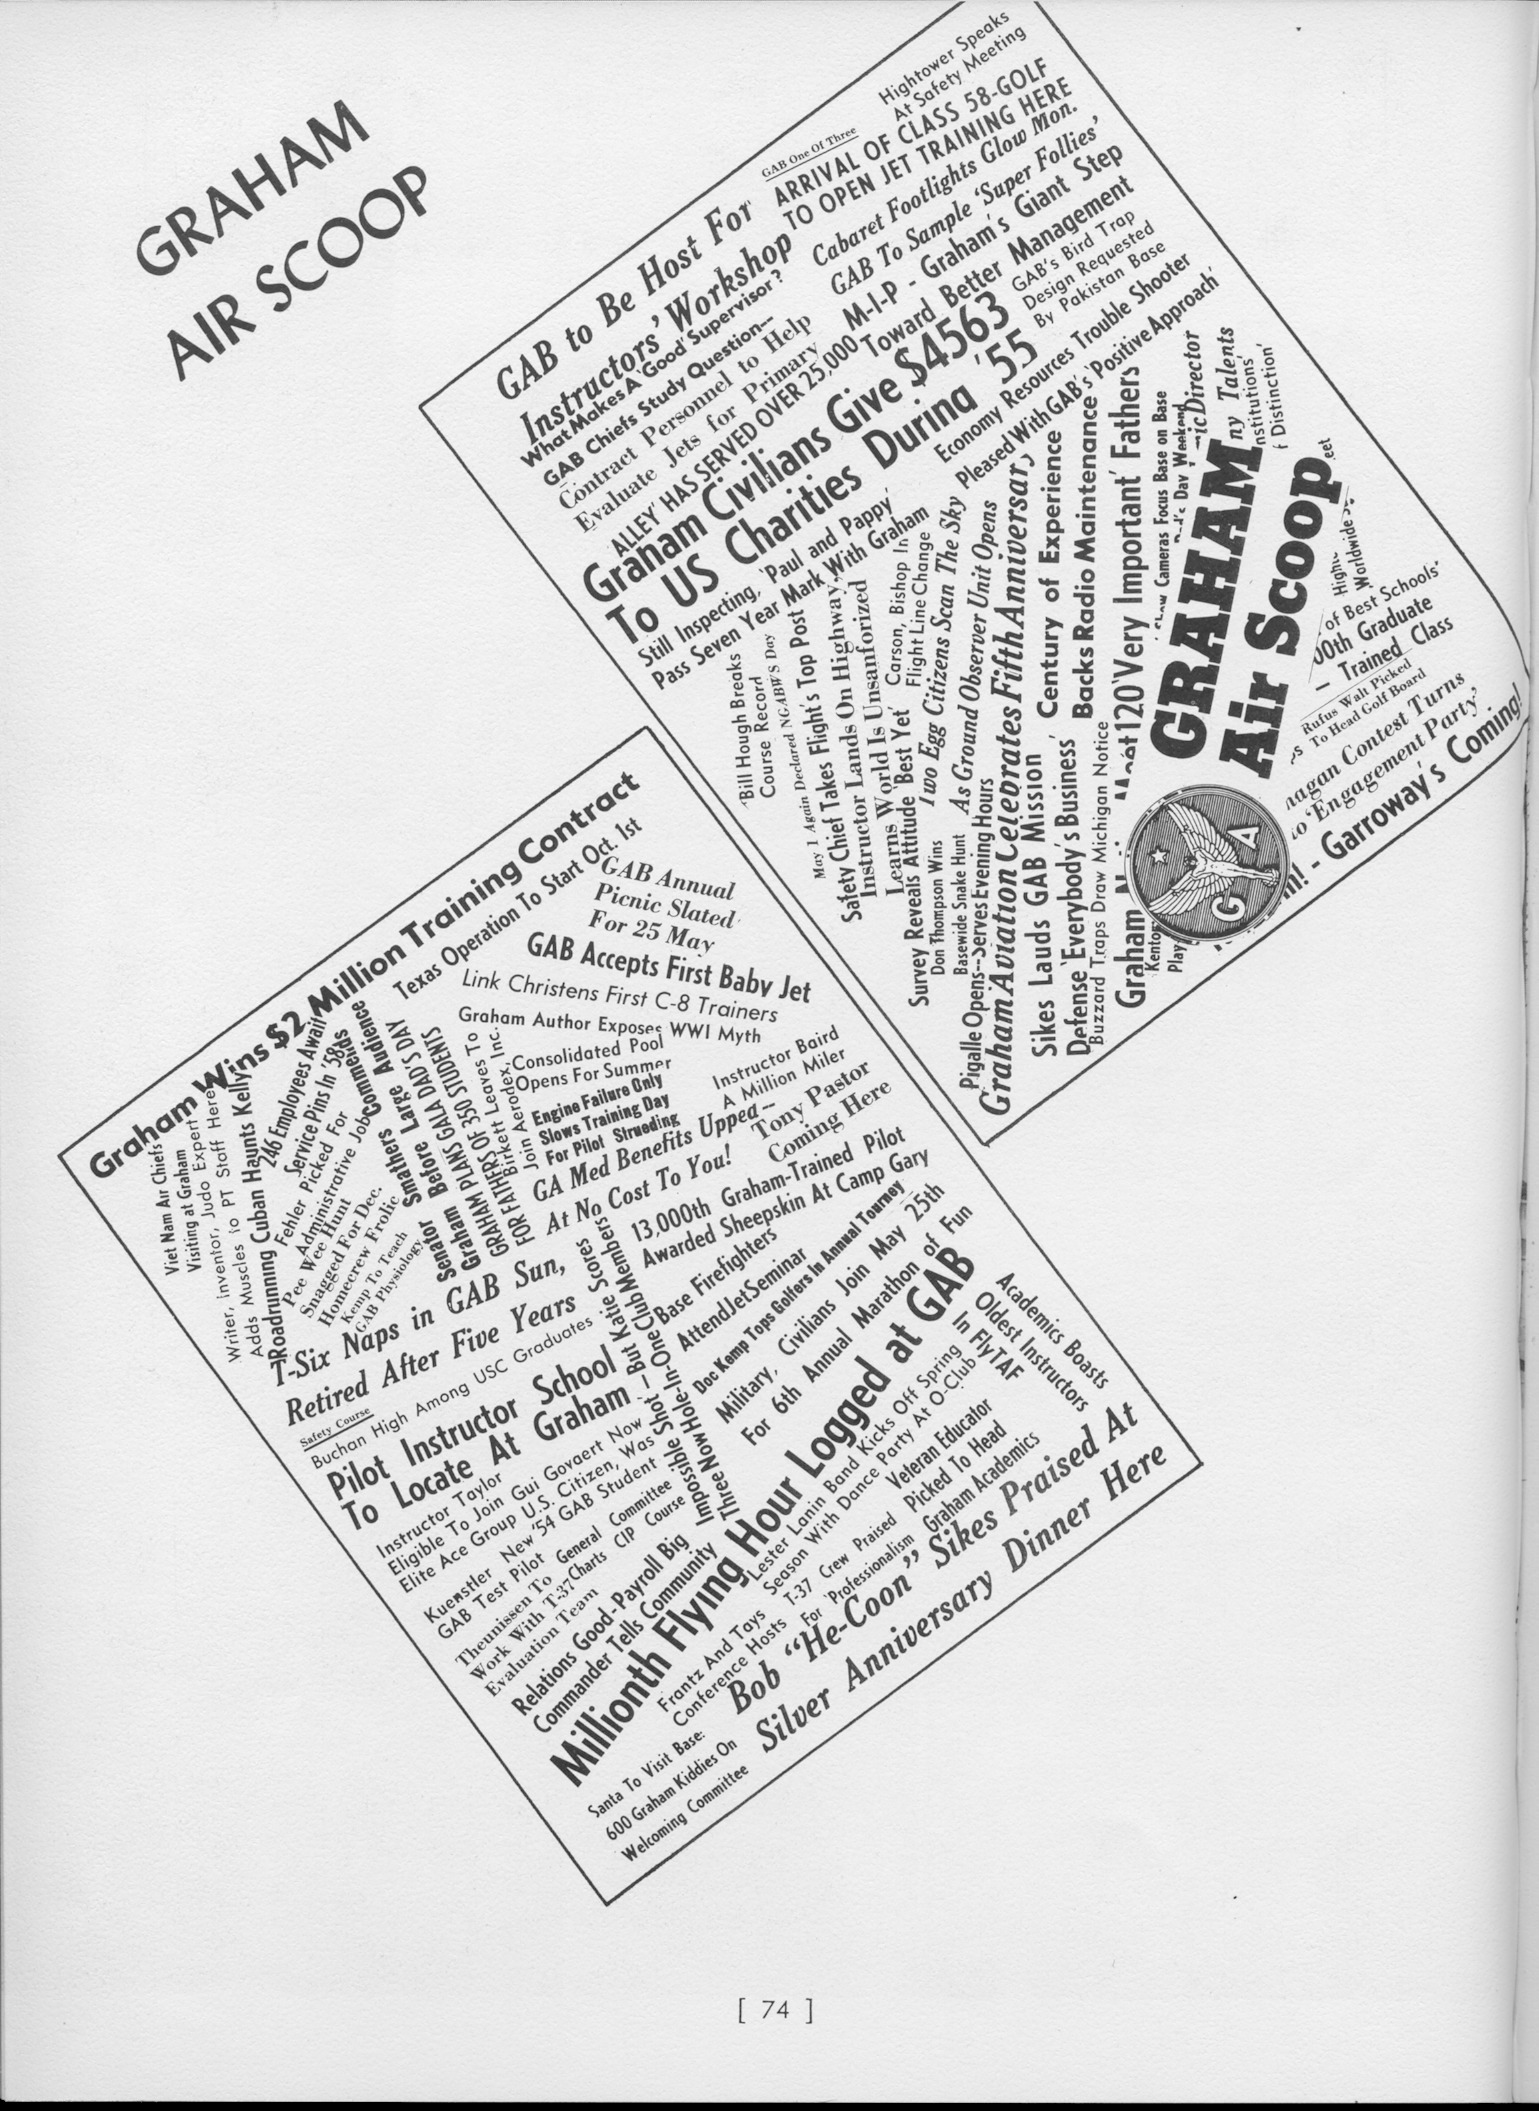 GRAHAM
AIR SCOOP
Hightower Speaks
At Safety Meeting
GAB One Of Three
GAB to Be Host For
Instructors' Workshop
ARRIVAL OF CLASS 58-GOLF
TO OPEN JET TRAINING HERE
What Makes A 'Good' Supervisor?
GAB Chiefs Study Question—
Cabaret Footlights Glow Mon.
GAB To Sample 'Super Follies'
Contract Personnel to Help
Evaluate Jets for Primary
M-I-P - Graham's Giant Step
Toward Better Management
ALLEY' HAS SERVED OVER 25,000
GAB's Bird Trap
Design Requested
By Pakistan Base
Graham Civilians Give $4563
To US Charities During '55
Economy Resources Trouble Shooter
Pleased With GAB's 'Positive Approach'
Still Inspecting, 'Paul and Pappy'
Pass Seven Year Mark With Graham
Bill Hough Breaks
Course Record
May 1 Again Declared NGABWS Day
Safety Chief Takes Flight's Top Post
Instructor Lands On Highway,
Learns World Is Unsanforized
Survey Reveals Attitude 'Best Yet'
Carson, Bishop In
Flight Line Change
Don Thompson Wins
Basewide Snake Hunt
Two Egg Citizens Scan The Sky
As Ground Observer Unit Opens
Pigalle Opens--Serves Evening Hours
Graham Aviation Celebrates Fifth Anniversary
Sikes Lauds GAB Mission
Defense 'Everybody's Business'
Century of Experience
Backs Radio Maintenance
Buzzard Traps Draw Michigan Notice
Graham
120 'Very Important' Fathers
Cameras Focus Base on Base
Day Weekend
Director
Talents
Institutions'
Distinction'
GRAHAM
Air Scoop
G A
Worldwide
of Best Schools'
00th Graduate
Trained Class
Rufus Walt Picked
To Head Golf Board
Contest Turns
'Engagement Party'
- Garroway's Coming!
Graham Wins $2 Million Training Contract
Texas Operation To Start Oct. 1st
GAB Annual
Picnic Slated
For 25 May
GAB Accepts First Baby Jet
Link Christens First C-8 Trainers
Graham Author Exposes WWI Myth
Viet Nam Air Chiefs
Visiting at Graham
Writer, Inventor, Judo Expert
Adds Muscles to PT Staff Here
'Roadrunning Cuban Haunts Kelly
246 Employees Await
Service Pins In '58
Fehler Picked For
Administrative Job
Pee Wee Hunt
Snagged For Dec.
Homecrew Frolic
Kemp To Teach
GAB Physiology
Senator Smathers Commends
Graham Before Large Audience
GRAHAM PLANS GALA DAD'S DAY
FOR FATHERS OF 350 STUDENTS
Birkett Leaves To
Join Aerodex, Inc.
Consolidated Pool
Opens For Summer
Engine Failure Only
Slows Training Day
For Pilot Strueding
Instructor Baird
A Million Miler
GA Med Benefits Upped--
At No Cost To You!
Tony Pastor
Coming Here
T-Six Naps in GAB Sun,
Retired After Five Years
13,000th Graham-Trained Pilot
Awarded Sheepskin At Camp Gary
Safety Course
Buchan High Among USC Graduates
Pilot Instructor School
To Locate At Graham
Impossible Shot' — But Katie Scores
Three Now Hole-In-One Club Members
Base Firefighters
Attend Jet Seminar
Doc Kemp Tops Golfers In Annual Tourney
Military, Civilians Join May 25th
For 6th Annual Marathon of Fun
Instructor Taylor
Eligible To Join
Elite Ace Group
Gui Govaert Now
U.S. Citizen, Was
New '54 GAB Student
Kuenstler
GAB Test Pilot
General Committee
Charts CIP Course
Theunissen To
Work With T-37
Evaluation Team
Relations Good-Payroll Big
Commander Tells Community
Millionth Flying Hour Logged at GAB
Academics Boasts
Oldest Instructors
In FlyTAF
Lester Lanin Band Kicks Off Spring
Season With Dance Party At O-Club
Veteran Educator
Picked To Head
Graham Academics
Frantz And Tays
Conference Hosts
T-37 Crew Praised
For 'Professionalism
Bob "He-Coon" Sikes Praised At
Silver Anniversary Dinner Here
Santa To Visit Base:
600 Graham Kiddies On
Welcoming Committee
[ 74 ]